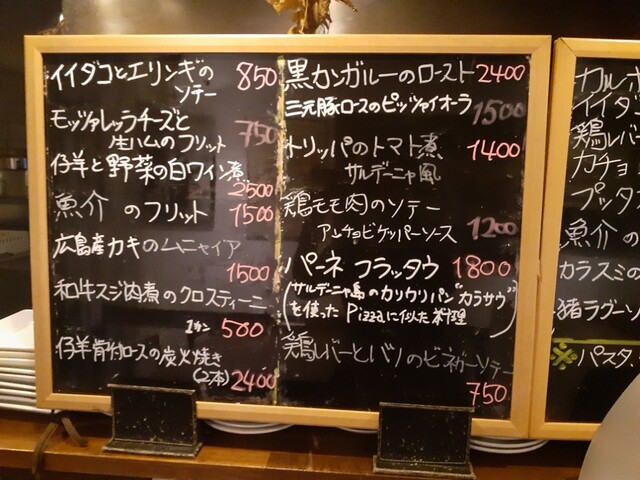 イイダコとエリンギの 850
ソテー
モッツァレッラチーズと
生ハムのフリット 750
仔羊と野菜の白ワイン煮
2500
魚介のフリット 1500
広島産カキのムニャイア
1500
和牛スジ肉煮のクロスティーニ
1カン 500
仔羊骨付ロースの炭火焼き
(2本) 2400
黒カンガルーのロースト 2400
三元豚ロースのピッツァイオーラ 1500
トリッパのトマト煮 1400
サルデーニャ風
鶏モモ肉のソテー
アンチョビケッパーソース 1200
パーネ フラッタウ 1800
(サルデーニャ島のカリカリパン"カラサウ"
を使ったPizzaに似た料理)
鶏レバーとハツのビネガーソテー
750
カルボ
イイダコ
鶏レバー
カチョ
プッタ
魚介の
カラスミの
猪ラグーソ
※パスタ